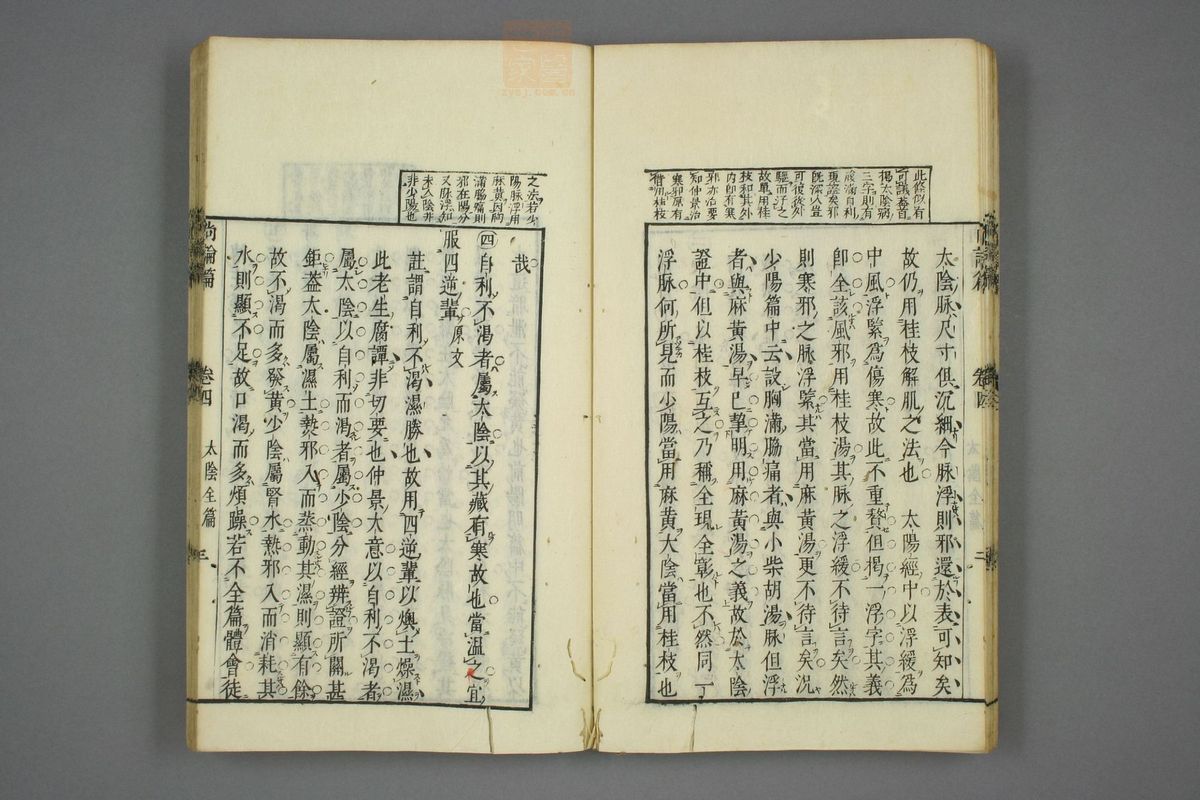 此條似有
可議蓋首
揭太陰病
三字則有
腹滿自利
裏證矣邪
既深入豈
可復從外
驅而汗之
故單用桂
枝和其外
内即有寒
邪亦治要
知仲景治
寒邪原有
太陰脉尺寸俱沉細今脉浮則邪還於表可知矣
故仍用桂枝解肌之法也　太陽經中以浮緩爲
中風浮緊爲傷寒故此不重贅但揭一浮字其義
即全該風邪用桂枝湯其脉之浮緩不待言矣然
則寒邪之脉浮緊其當用麻黄湯更不待言矣况
少陽篇中云設胸滿脇痛者與小柴胡湯脉但浮
者與麻黄湯早巳挈明用麻黄湯之義故於太陰
證中但以桂枝互之乃稱全現全彰也不然同一
浮脉何所見而少陽當用麻黄太陰當用桂枝也
卷四
太陰全篇
二
之法若少
陽脉浮用
麻黄因胸
滿脇痛則
邪在陽分
又脉浮知
未入陰非
非少陽也
哉
㊃自利不渴者屬太陰以其藏有寒故也當温之宜
服四逆輩原文
註謂自利不渴濕勝也故用四逆輩以燠土燥濕
此老生腐譚非切要也仲景大意以自利不渴者
屬太陰以自利而渴者屬少陰分經辨證所關甚
鉅葢太陰屬濕土熱邪入而蒸動其濕則顯有餘
故不渴而多發黄少陰屬腎水熱邪入而消耗其
水則顯不足故口渴而多煩躁若不全篇體會徒
尚論篇
卷四
太陰全篇
三
zysj.com.cn